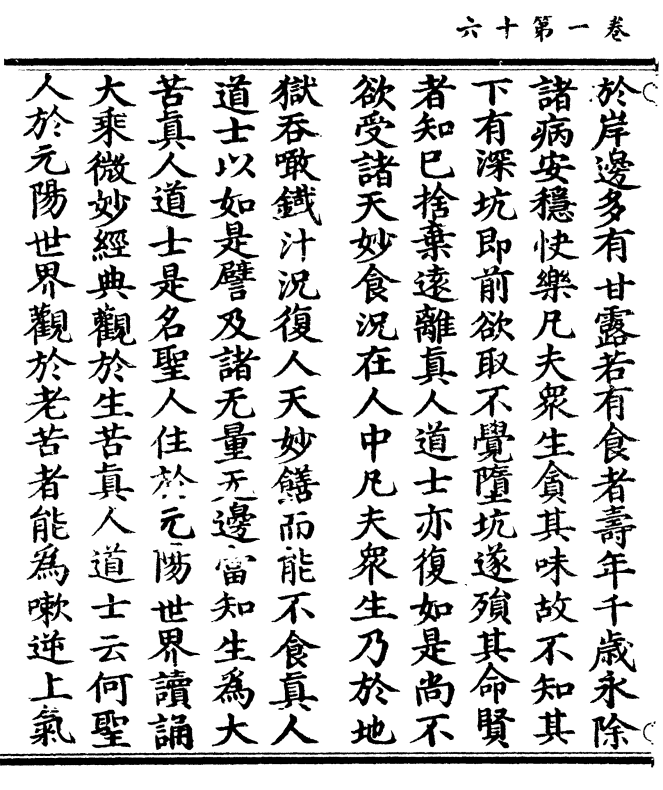 卷一第十六
於岸邊多有甘露若有食者壽年千歲永除
諸病安穩快樂凡夫眾生貪其味故不知其
下有深坑即前欲取不覺墮坑遂殞其命賢
者知已捨棄遠離真人道士亦復如是尚不
欲受諸天妙食況在人中凡夫眾生乃於地
獄吞噉鐵汁況復人天妙饍而能不食真人
道士以如是譬及諸无量无邊當知生為大
苦真人道士是名聖人住於元陽世界讀誦
大乘微妙經典觀於生苦真人道士云何聖
人於元陽世界觀於老苦者能為嗽逆上氣